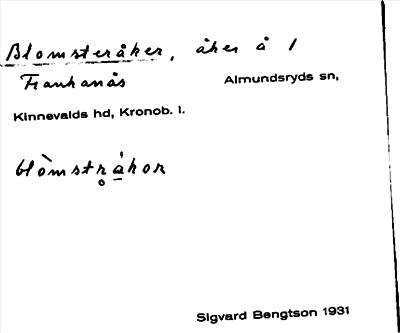 Blomsteråker, åker å 1
Frankanås Almundsryds sn,
Kinnevalds hd, Kronob. l.
blòmstr̥å̱kor
Sigvard Bengtson 1931